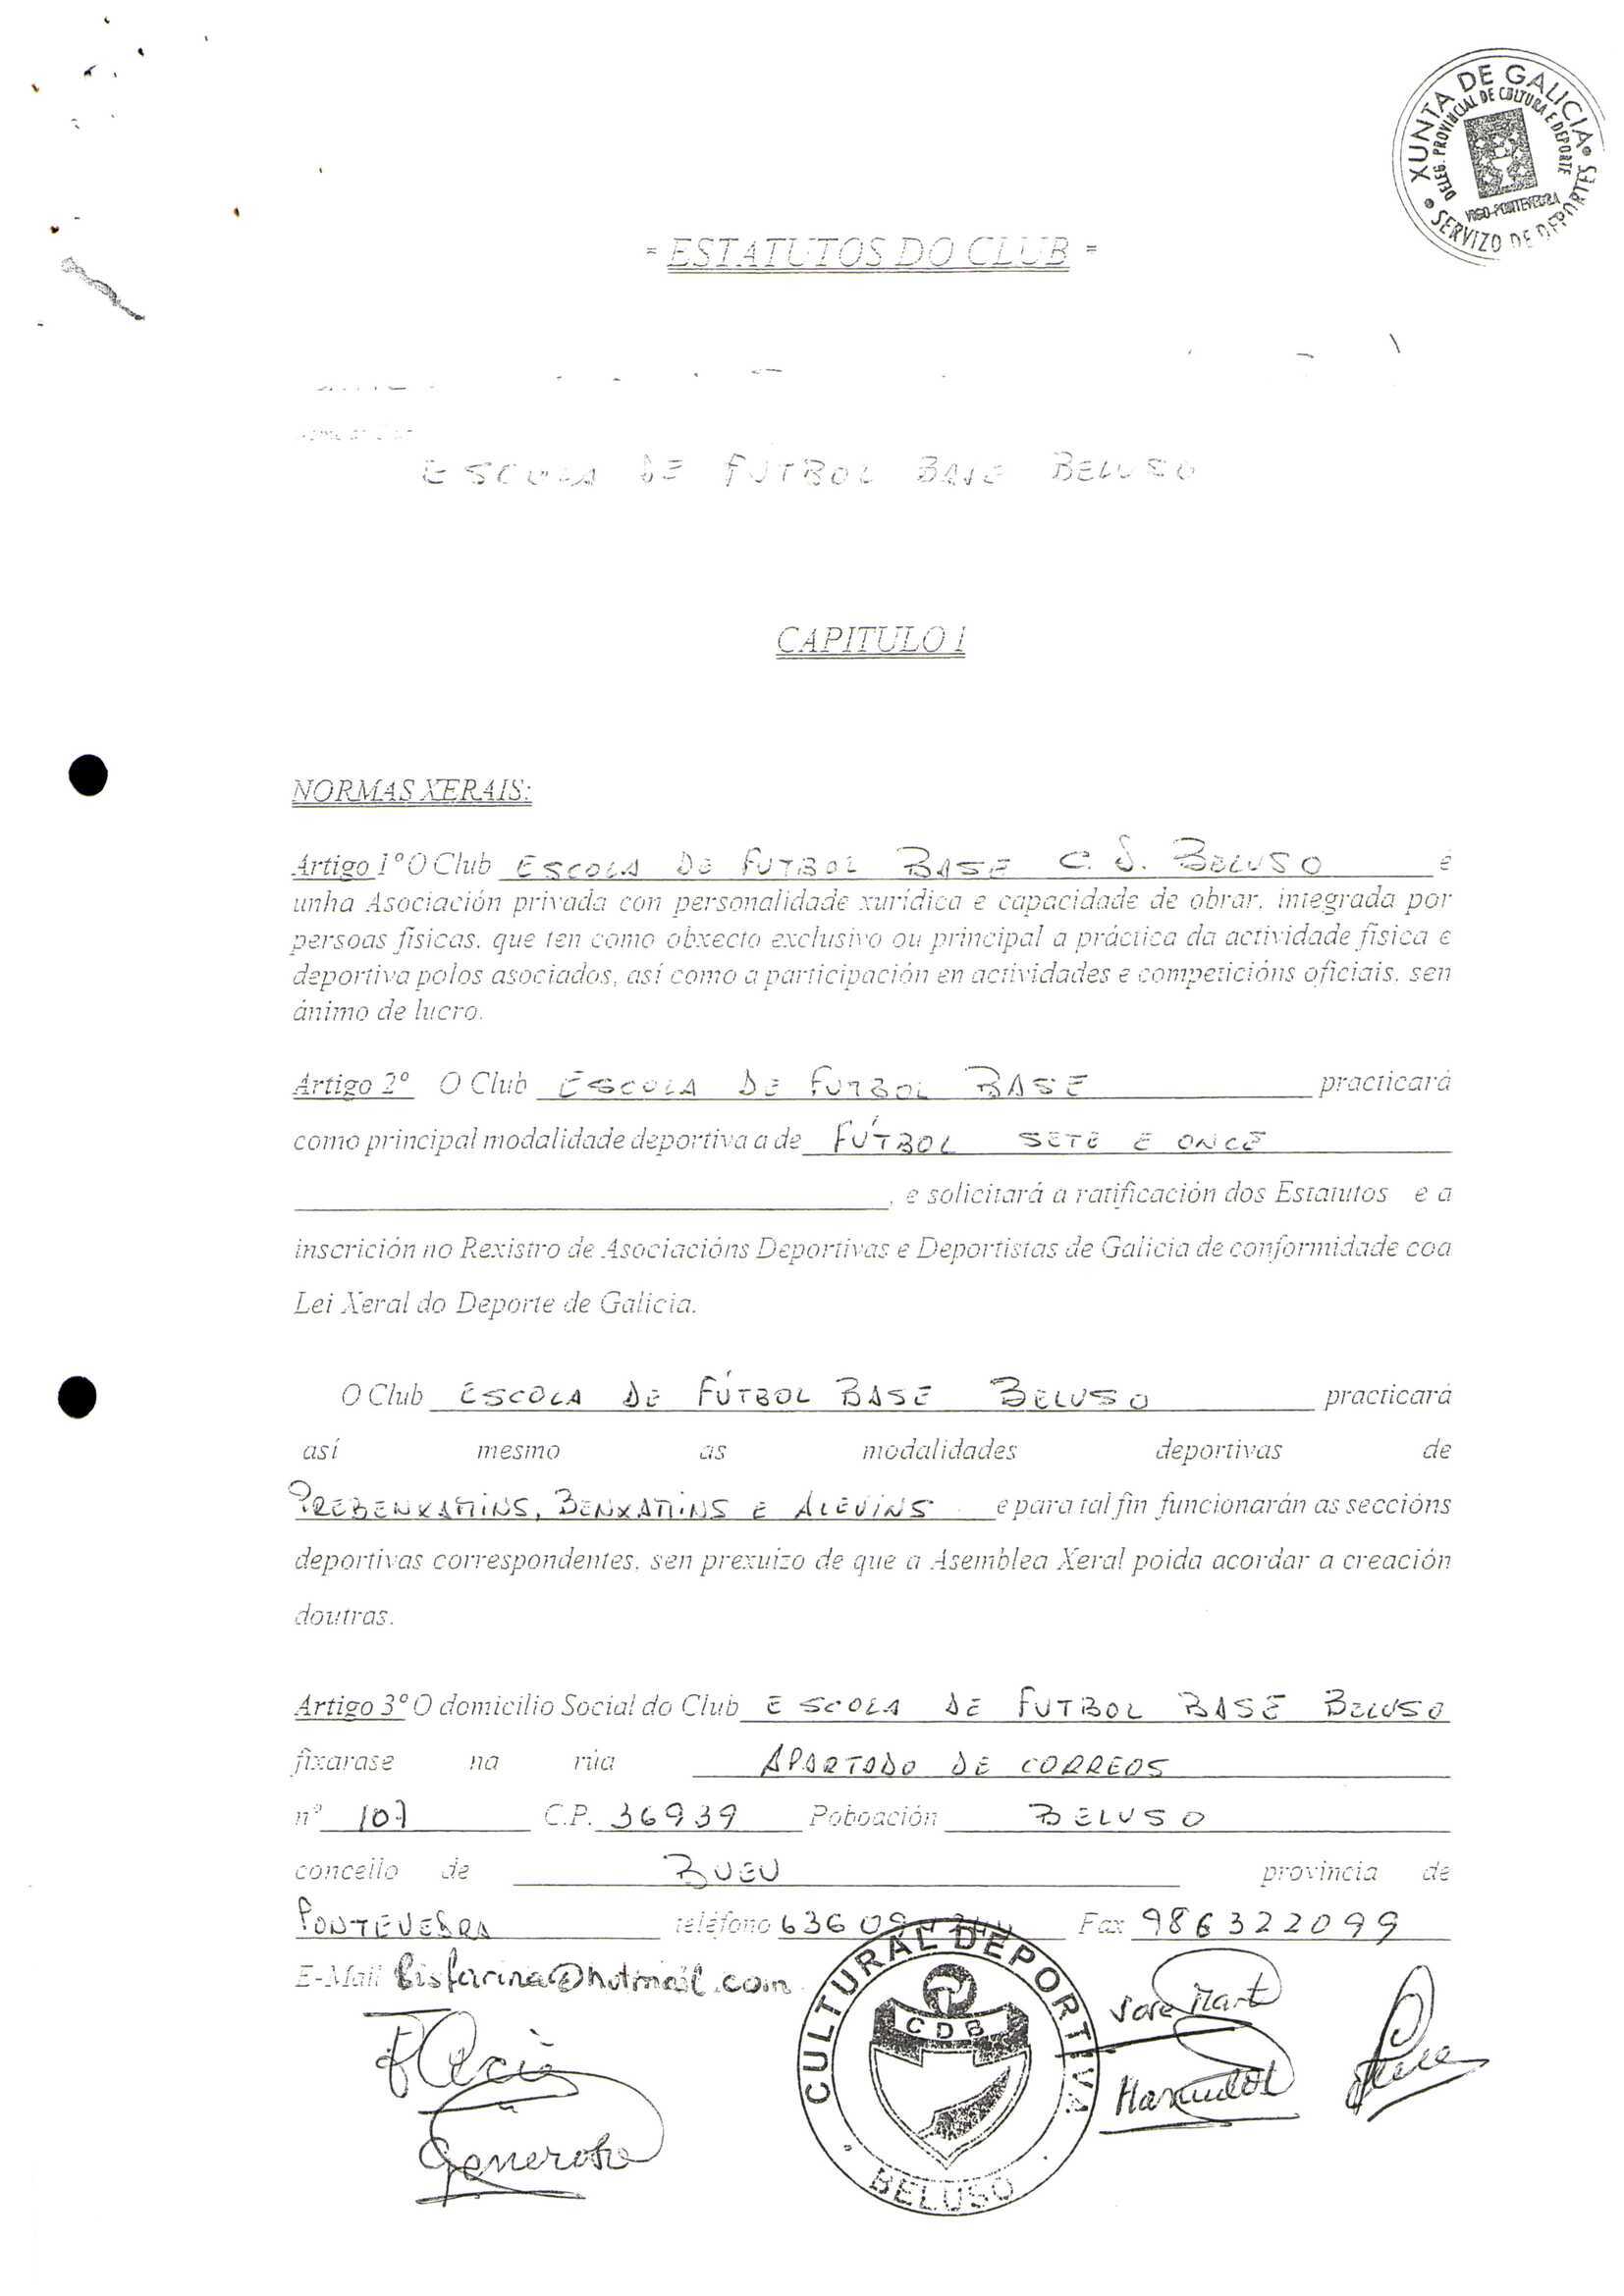 XUNTA DE GALICIA
DELEG. PROVINCIAL DE CULTURA E DEPORTE
VIGO-PONTEVEDRA
SERVIZO DE DEPORTES
= ESTATUTOS DO CLUB =
ESCOLA DE FUTBOL BASE BELUSO
CAPITULO I
NORMAS XERAIS:
Artigo 1º O Club ESCOLA DE FUTBOL BASE C. D. BELUSO é
unha Asociación privada con personalidade xurídica e capacidade de obrar, integrada por
persoas físicas, que ten como obxecto exclusivo ou principal a práctica da actividade física e
deportiva polos asociados, así como a participación en actividades e competicións oficiais, sen
ánimo de lucro.
Artigo 2º O Club ESCOLA DE FUTBOL BASE practicará
como principal modalidade deportiva a de FÚTBOL SETE E ONCE
, e solicitará a ratificación dos Estatutos e a
inscrición no Rexistro de Asociacións Deportivas e Deportistas de Galicia de conformidade coa
Lei Xeral do Deporte de Galicia.
O Club ESCOLA DE FÚTBOL BASE BELUSO practicará
así mesmo as modalidades deportivas de
PREBENXAMINS, BENXAMINS E ALEVINS e para tal fin funcionarán as seccións
deportivas correspondentes, sen prexuizo de que a Asemblea Xeral poida acordar a creación
doutras.
Artigo 3º O domicilio Social do Club ESCOLA DE FUTBOL BASE BELUSO
fixarase na rúa APARTADO DE CORREOS
nº 107 C.P. 36939 Poboación BELUSO
concello de BUEU provincia de
PONTEVEDRA teléfono 636 09 Fax 986322099
E-Mail bisfarina@hotmail.com
CULTURAL DEPORTIVA
CDB
BELUSO
Generosa